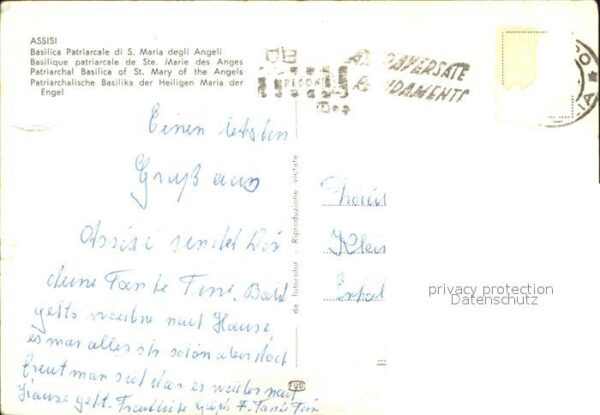 ASSISI
Basilica Patriarcale di S. Maria degli Angeli
Basilique patriarcale de Ste. Marie des Anges
Patriarchal Basilica of St. Mary of the Angels
Patriarchalische Basilika der Heiligen Maria der
Engel
ATTRAVERSATE
RAPIDAMENTE
Einen letzten
Gruß aus
Assisi sendet Dir
deine Tante Tini. Bald
gehts wieder nach Hause,
es war alles sehr schön aber doch
freut man sich das es wieder nach
Hause geht.
Tante Tini
de fotocolor - Riproduzione vietata
Klein
privacy protection
Datenschutz